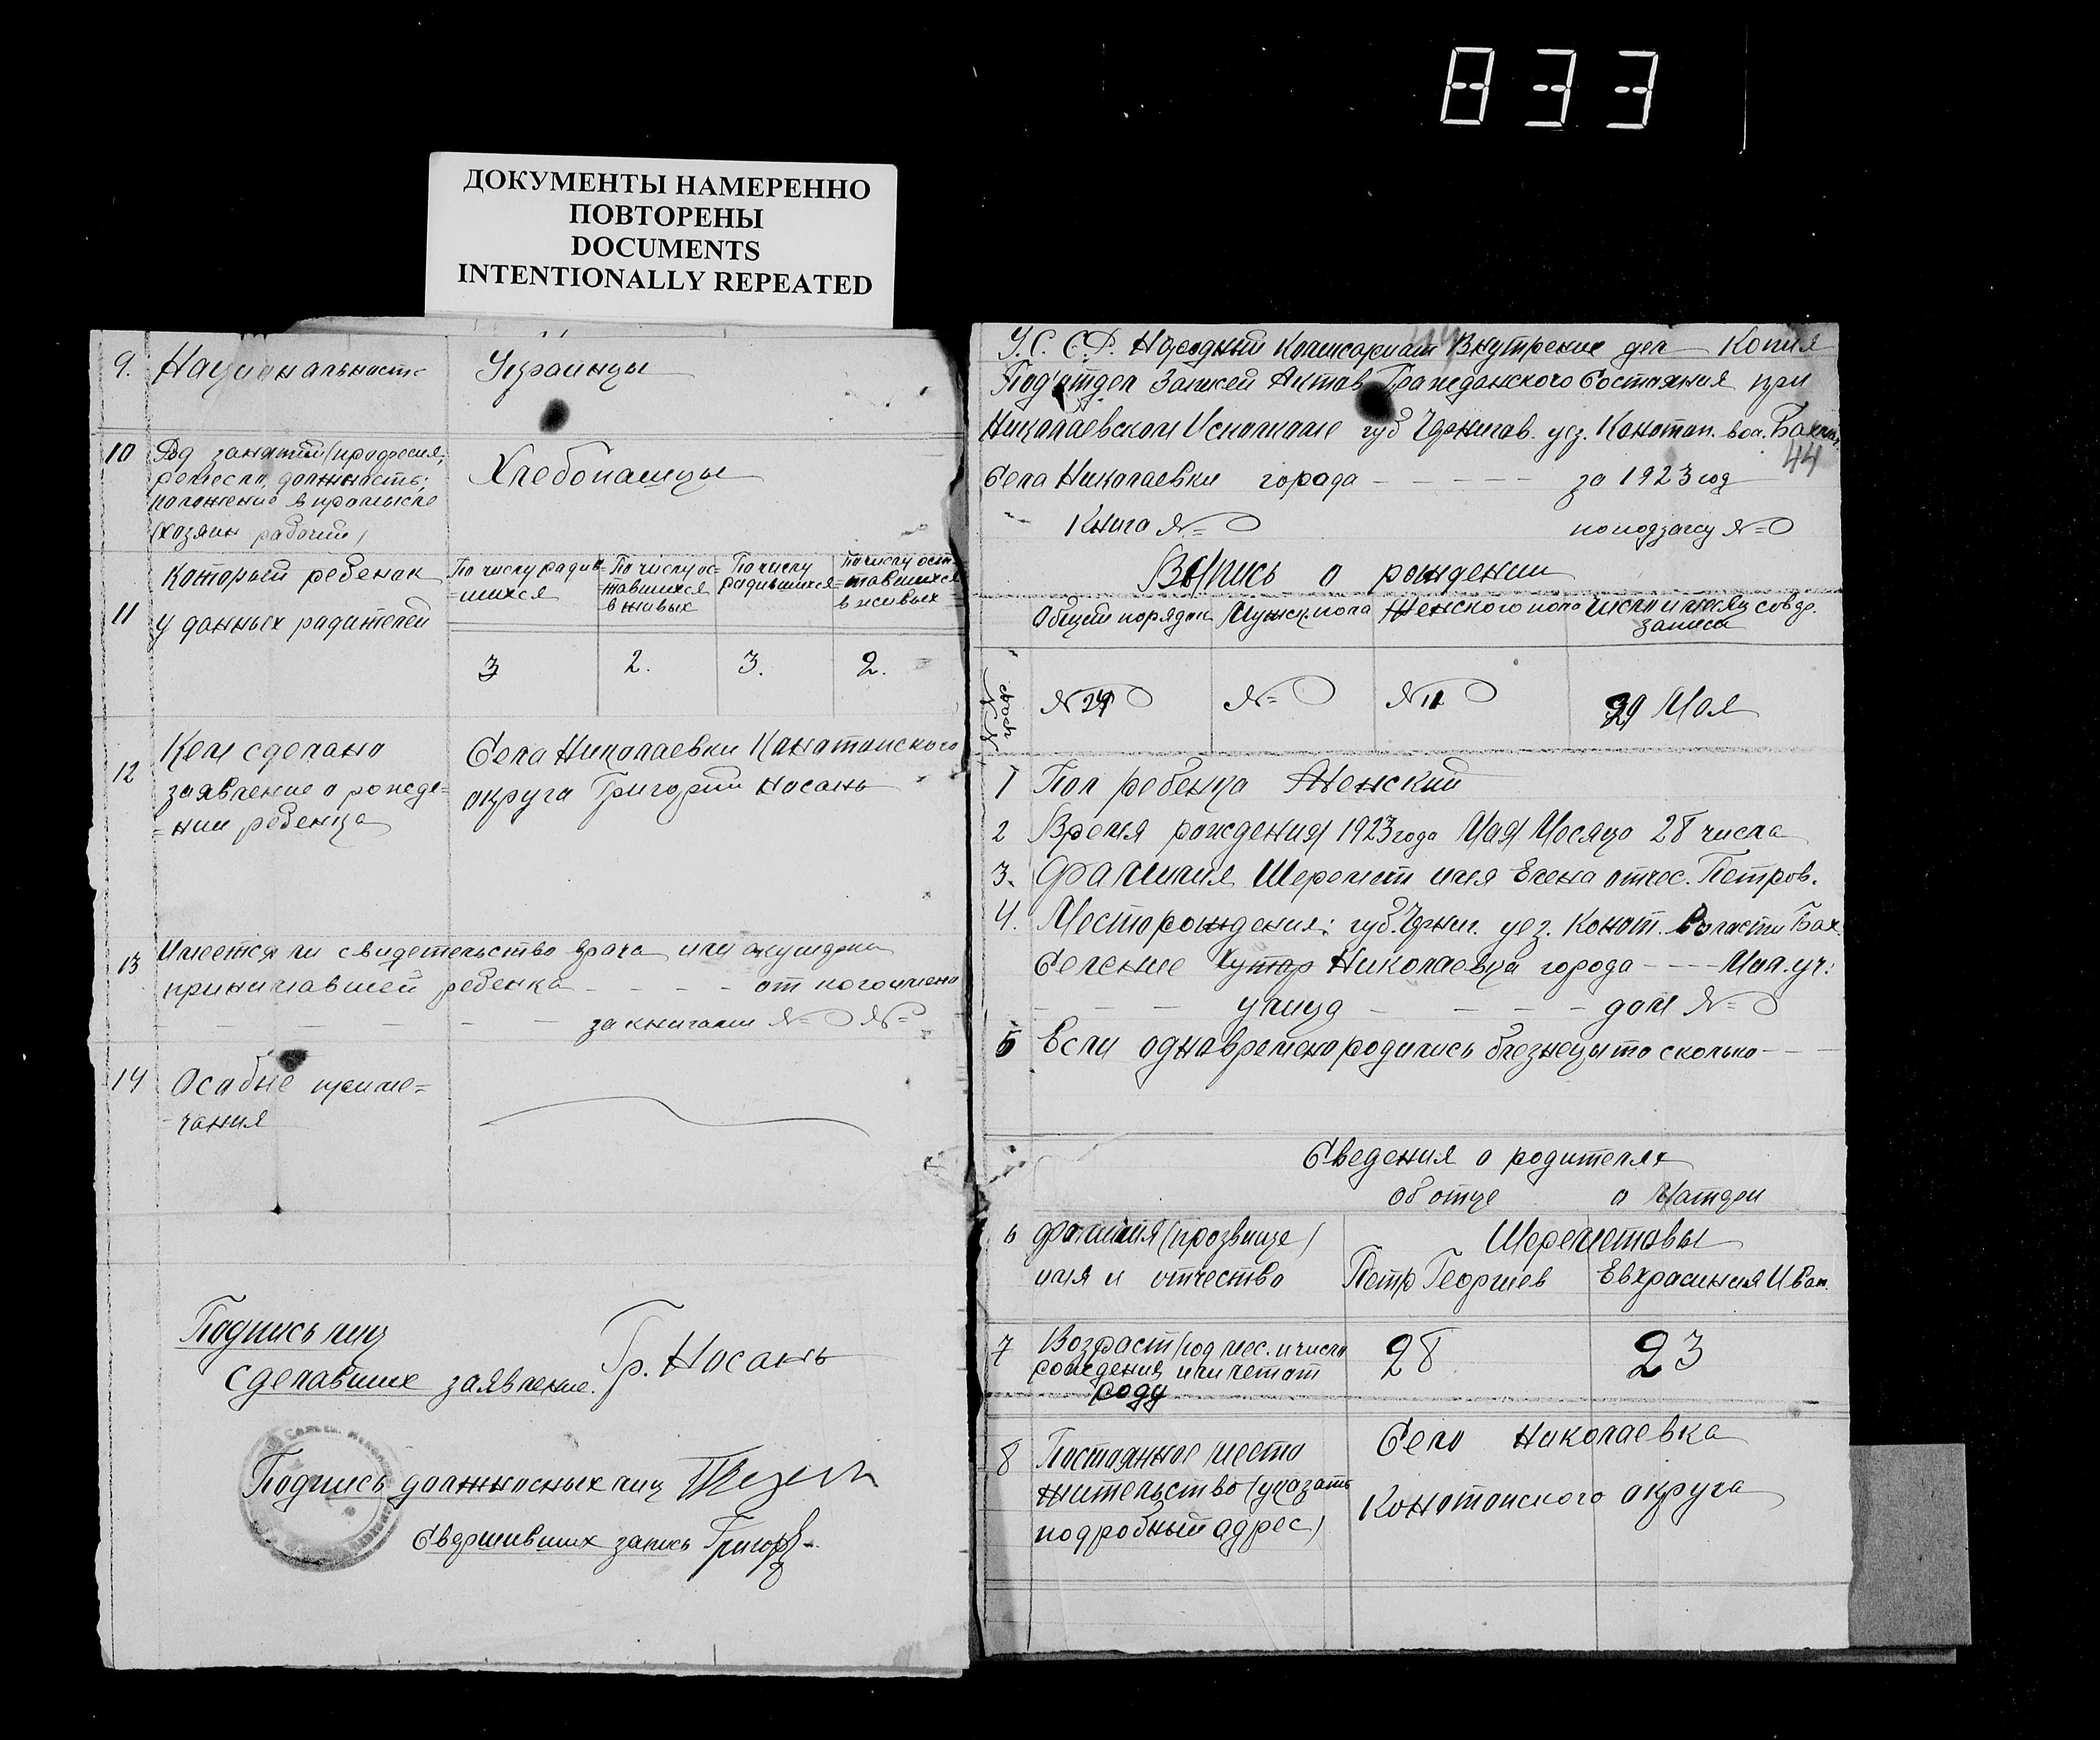 833
ДОКУМЕНТЫ НАМЕРЕННО
ПОВТОРЕНЫ
DOCUMENTS
INTENTIONALLY REPEATED
9. Национальность Украинцы
10 Род занятий (професия,
ремесло, должность;
положение в промысле
(хозяин рабочий)
Хлебопашцы
11 Который ребенок
у данных родителей
По числу родив=
=шихся
По числу ос=
тавшихся
в живых
По числу
родившихся
По числу ост
=тавшихся
в живых
3 2. 3. 2.
12 Кем сделано
заявление о рожде=
=нии ребенка
Села Николаевки Канатопского
округа Григорий Носань
13 Имеется ли свидетельство врача или акушерки
принимавшей ребенка - - - - от кого имено
- - - - - за книгами №= №=
14 Особые приме=
-чания
Подпись лиц
сделавших заявление. Гр. Носань
Подпись должносных лиц
Свершивших запись
У.С.С.Р. Народный Комисариат Внутрение дел Копия
Под'отдел Записей Актов Гражданского Состояния при
Николаевском Исполкоме губ Чернигов. уез. Конотоп. вол. Бахмач.
44
Села Николаевки города - - - - - за 1923 год
Книга №=
Выпись о рождении
Общий порядок Мужск. пола Женского пола
записи
№ №= № 11 Мая
1 Пол ребенка Женский
2 Время рождения 1923 года Мая Месяца 28 числа
3. Фамилия Шеремет имя Елена отчес. Петров.
4. Место рождения: губ. Черн. уез. Конот. Волости Бах.
Селение Хутор Николаевка города - - - Мил. уч:
- - - улица - - - - дом №=
5 Если одновремено родились близнецы то сколько - - -
Сведения о родителях
Об отце о Матери
6 фамилия (прозвище)
имя и отчество
Шереметовы
Петр Георгиев Евхрасиния Иван.
7 Возраст (год мес. и число
рождения или летот
роду
28 23
8 Постоянное место
жительство (указать
подробный адрес)
Село Николаевка
Конотопского округа